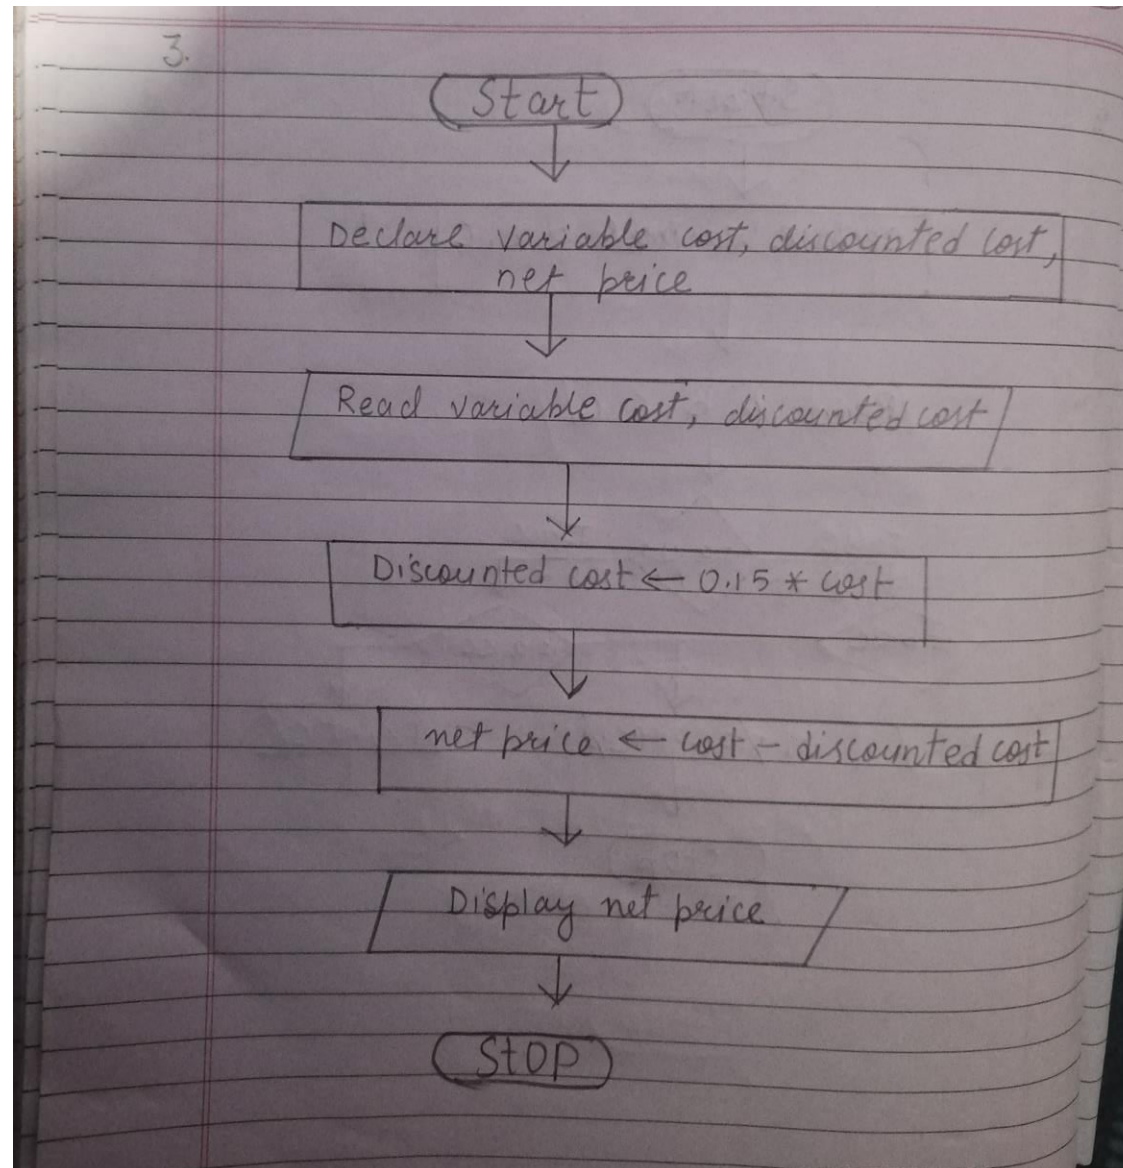 3.
Start
Declare variable cost, discounted cost,
net price
Read variable cost, discounted cost
Discounted cost ← 0.15 * cost
net price ← cost - discounted cost
Display net price
Stop